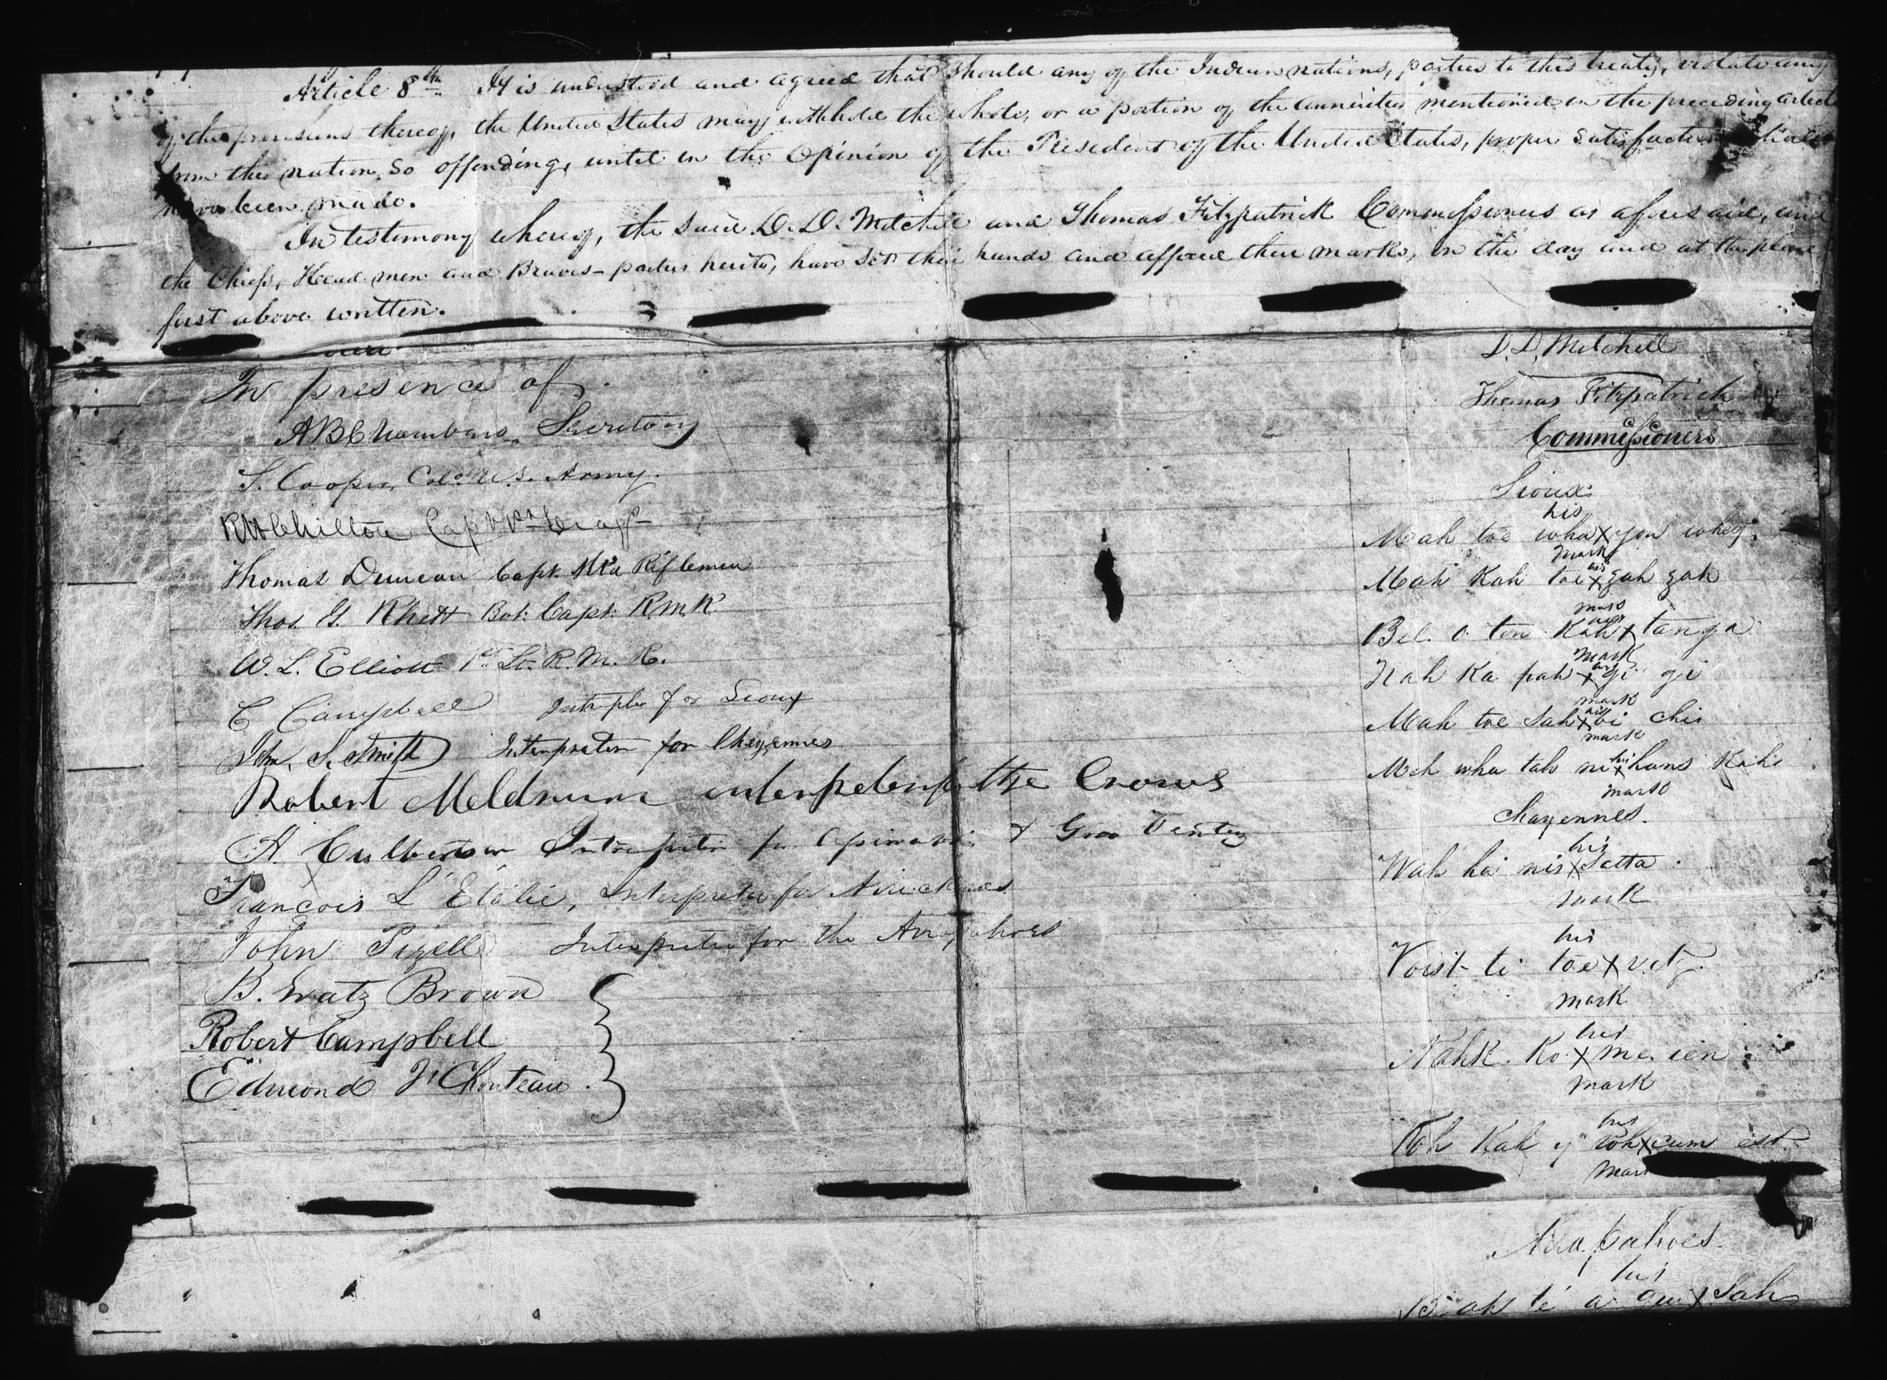 Article 8th. It is understood and agreed that should any of the Indian nations, parties to this treaty, violate any
of the provisions thereof, the United States may withhold the whole, or a portion of the annuities mentioned in the preceding article
from the nation so offending, until in the opinion of the President of the United States, proper satisfaction shall
have been made.
In testimony whereof, the said D. D. Mitchell and Thomas Fitzpatrick Commissioners as aforesaid, and
the Chiefs, Head men and Braves – parties hereto, have set their hands and affixed their marks, on the day and at the place
first above written.
D. D. Mitchell
Thomas Fitzpatrick
Commissioners
In presence of
A B Chambers Secretary
S. Cooper, Colo. U.S. Army.
R H Chilton Capt 1st Drags
Thomas Duncan Capt. Mtd Riflemen
Thos. G. Rhett Bvt. Capt. R.M.R.
W. L. Elliott 1st Lt. R. M. R.
C Campbell Interpter for Sioux
Jno. S. Smith Interpreter for Cheyennes
Robert Meldrum interpeter for the Crows
A. Culbertson Interpreter for Assiniboins & Gros Ventres
Francois L'Etalie, Interpreter for Arrickarees
John Pizelle Interpreter for the Arrapahoes
B. Gratz Brown
Robert Campbell
Edmond F. Chouteau.
Sioux
his
Mah toe wha x you whey.
mark
Mah Kah toe his x zah zah
mark
Bel. o ton Kah his x tanga
mark
Nah Ka pah his x gi gi
mark
Mah toe sah his x bi chis
mark
Meh wha tah ni his x hans Kah.
mark
Chayennes.
his
Wah ha nis x Satta.
mark
his
Voist ti toe x vetz.
mark
his
Nahk. Ko x me ien.
mark
his
Koh Kah y wh x cum est.
mark
Arrapahoes.
his
B ah té a qui x sah